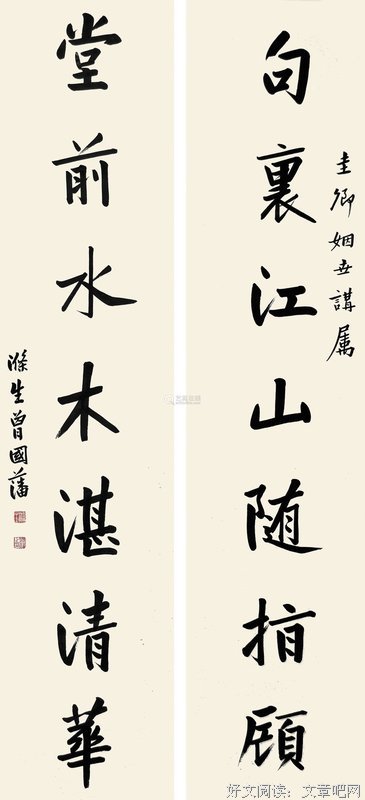 圭卿姻世講属
句裏江山随指顧
堂前水木湛清華
滌生曾國藩
好文阅读：文章吧网